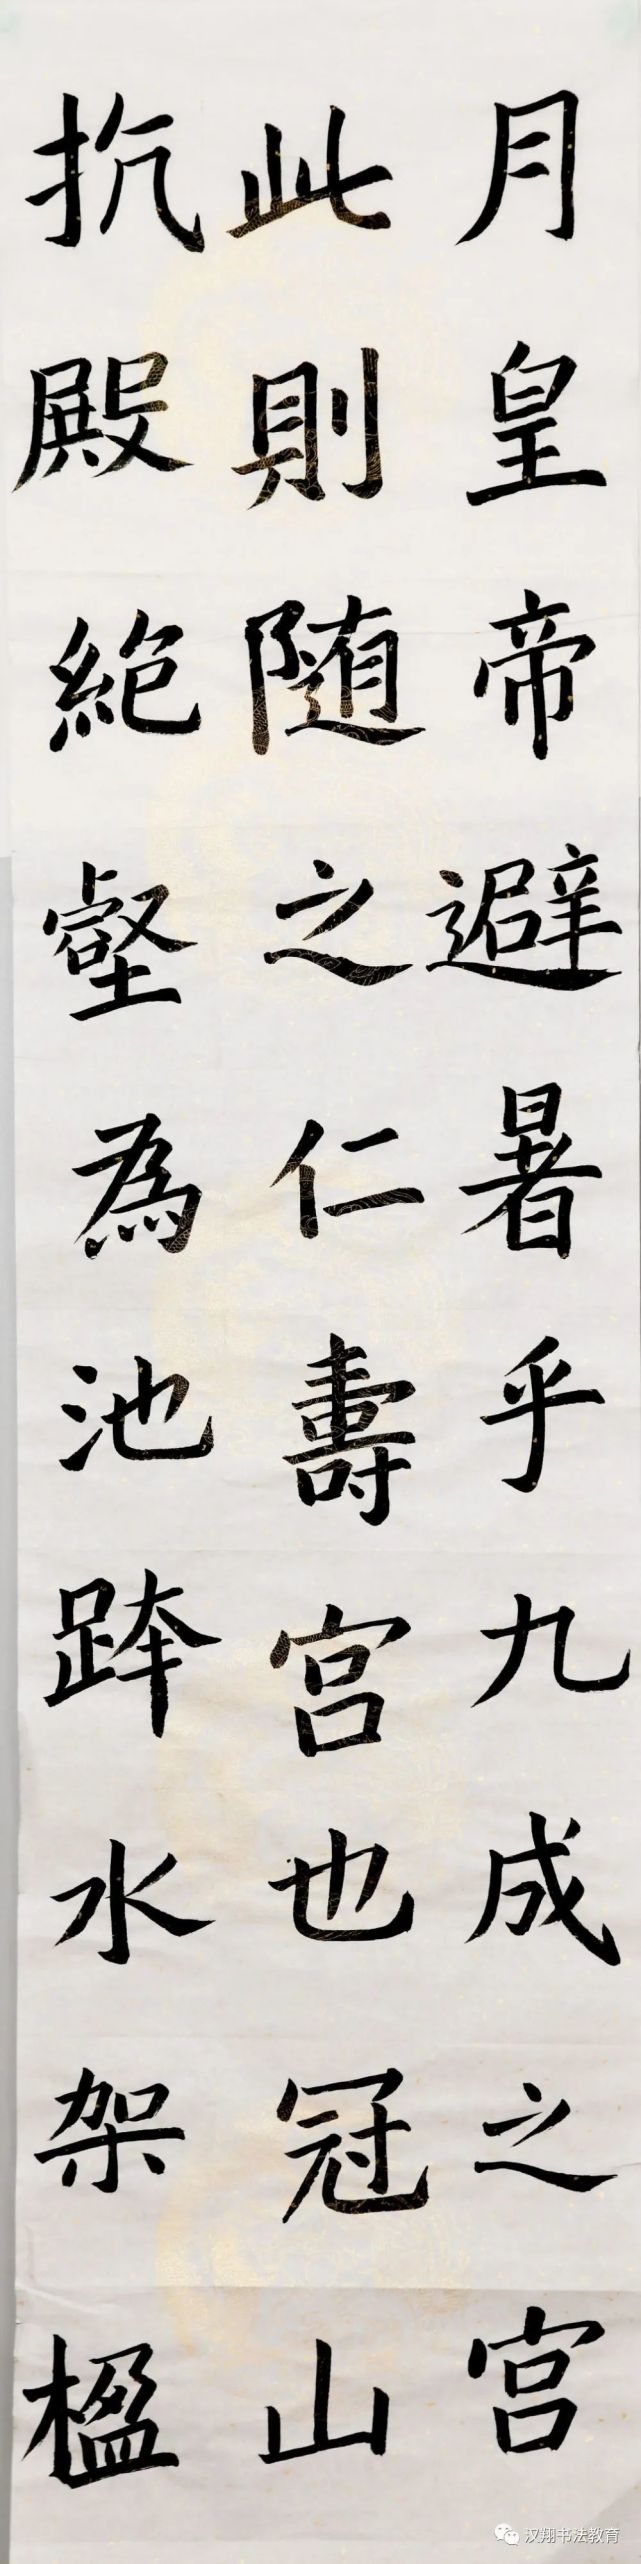 月皇帝避暑乎九成之宫
此則随之仁壽宫也冠山
抗殿絶壑為池跨水架楹
汉翔书法教育